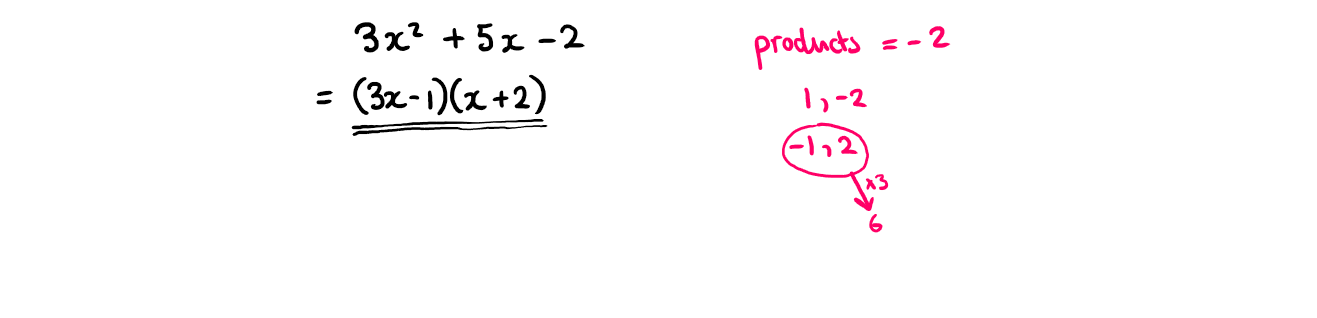 3x² + 5x - 2
= (3x-1)(x+2)
products = -2
1, -2
-1, 2
x3
6